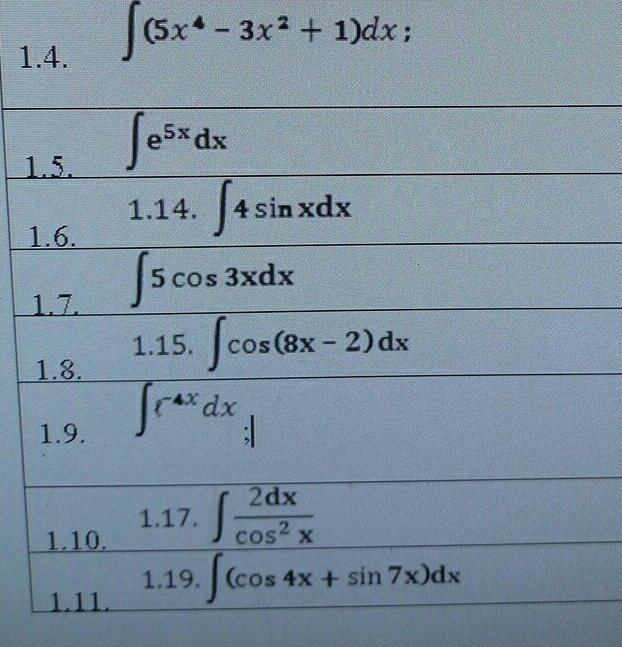 1.4. ∫(5x⁴ − 3x² + 1)dx;
1.5. ∫e⁵ˣdx
1.6. 1.14. ∫4 sin xdx
1.7. ∫5 cos 3xdx
1.8. 1.15. ∫cos(8x − 2)dx
1.9. ∫e⁻⁴ˣ dx ;
1.10. 1.17. ∫ 2dx / cos² x
1.11. 1.19. ∫(cos 4x + sin 7x)dx